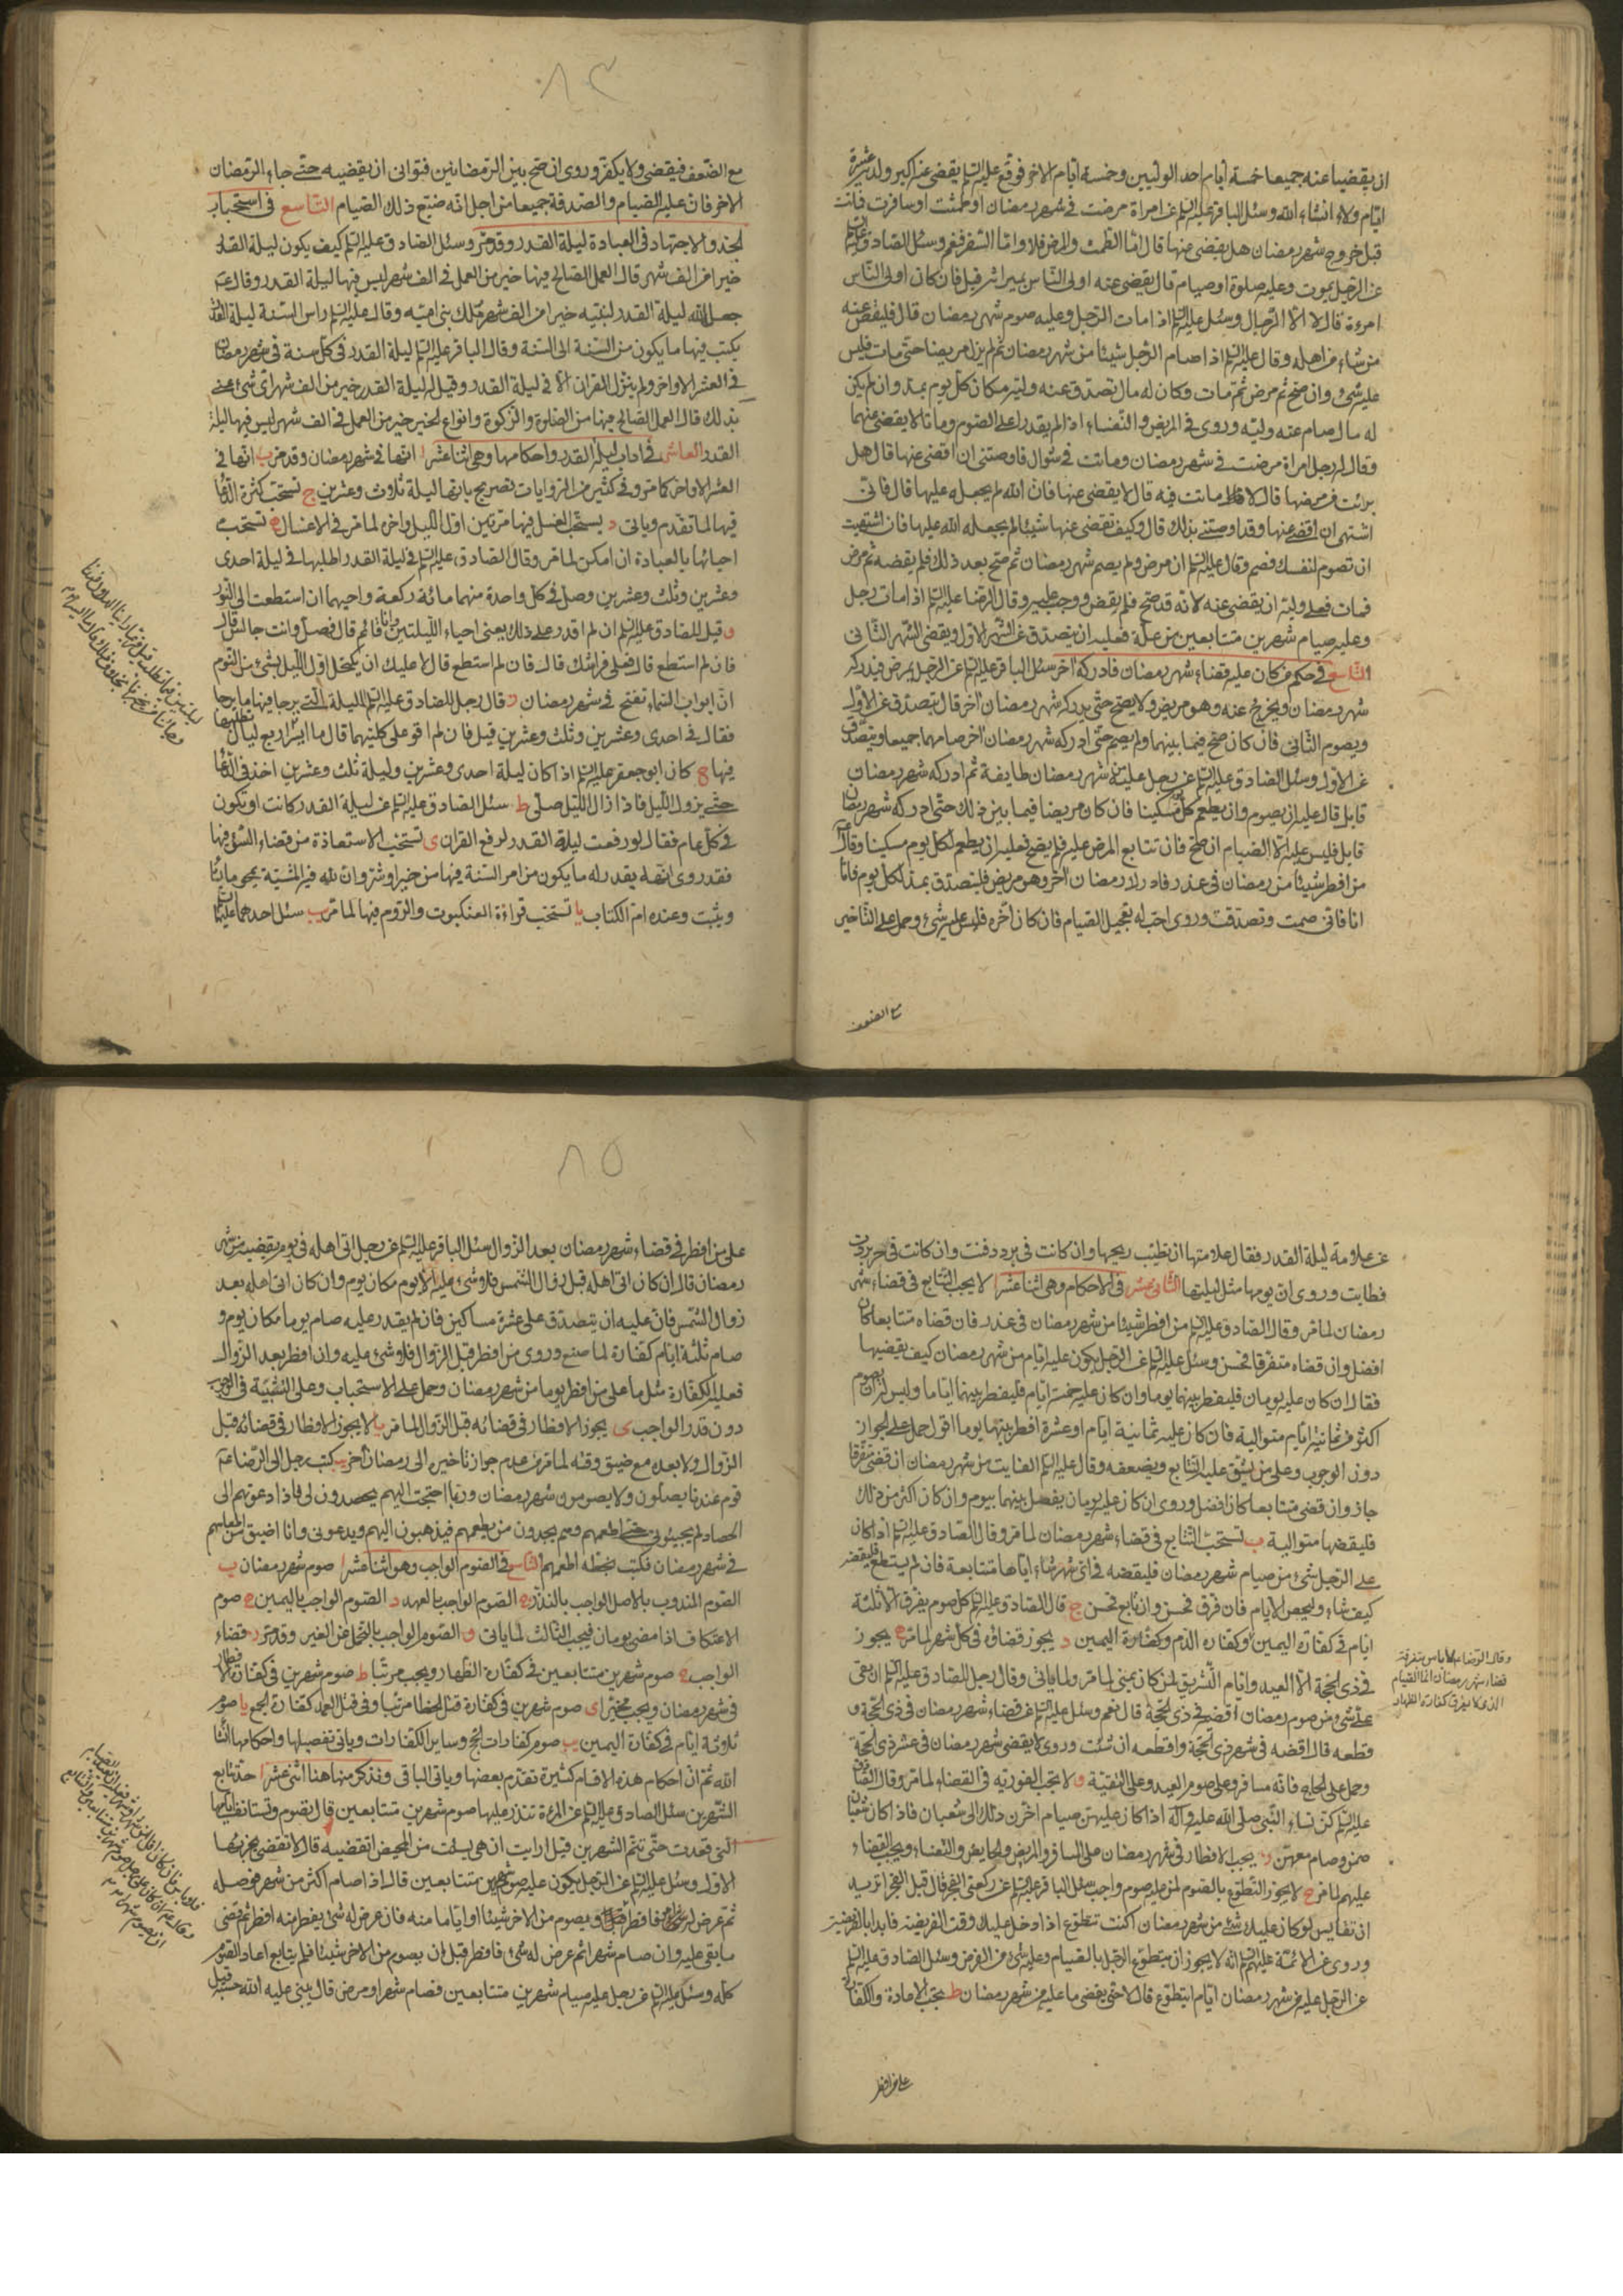 ان يقضيا عنه جميعا خمسة ايام احد الوليين وخمسة ايام الاخر فوقع عليه السلم يقضى عنه اكبر ولده عشرة
ايام ولاء انشاء الله وسئل الباقر عليه السلم عن امراة مرضت فى شهر رمضان او طمثت او سافرت فماتت
قبل خروج شهر رمضان هل يقضى عنها قال اما الطمث والمرض فلا واما السفر فنعم وسئل الصادق عليه السلم
عن الرجل يموت وعليه صلوة او صيام قال يقضى عنه اولى الناس بميراثه قيل فان كان اولى الناس
امرءة قال لا الا الرجال وسئل عليه السلم اذا مات الرجل وعليه صوم شهر رمضان قال فليقض عنه
من شاء من اهله وقال عليه السلم اذا صام الرجل شيئا من شهر رمضان ثم لم يزل مريضا حتى مات فليس
عليه شىء وان صح ثم مرض ثم مات وكان له مال تصدق عنه وليه مكان كل يوم بمد وان لم يكن
له مال صام عنه وليه وروى فى المريض والنفساء اذا لم يقدرا على الصوم وماتا لا يقضى عنهما
وقال له رجل امراة مرضت فى شهر رمضان وماتت فى شوال فاوصتنى ان اقضى عنها قال هل
برئت من مرضها قال لا ماتت فيه قال لا يقضى عنها فان الله لم يجعله عليها قال فانى
اشتهى ان اقضى عنها وقد اوصتنى بذلك قال وكيف تقضى عنها شيئا لم يجعله الله عليها فان اشتهيت
ان تصوم لنفسك فصم وقال عليه السلم ان مرض ولم يصم شهر رمضان ثم صح بعد ذلك فلم يقضه ثم مرض
فمات فعلى وليه ان يقضى عنه لانه قد صح فلم يقض ووجب عليه وقال الرضا عليه السلم اذا مات رجل
وعليه صيام شهرين متتابعين من علة فعليه ان يتصدق عن الشهر الاول ويقضى الشهر الثانى
فى حكم من كان عليه قضاء شهر رمضان فادركه اخر سئل الباقر عليه السلم عن الرجل يمرض فيدركه
شهر رمضان ويخرج عنه وهو مريض ولا يصح حتى يدركه شهر رمضان اخر قال يتصدق عن الاول
ويصوم الثانى فان كان صح فيما بينهما ولم يصم حتى ادركه شهر رمضان اخر صامهما جميعا ويتصدق
عن الاول وسئل الصادق عليه السلم عن رجل عليه من شهر رمضان طايفة ثم ادركه شهر رمضان
قابل قال عليه ان يصوم وان يطعم كل يوم مسكينا فان كان مريضا فيما بين ذلك حتى ادركه شهر رمضان
قابل فليس عليه الا الصيام ان صح فان تتابع المرض عليه فلم يصح فعليه ان يطعم لكل يوم مسكينا وقال
من افطر شيئا من رمضان فى عذر فادرك رمضان اخر وهو مريض فليتصدق بمد لكل يوم فاما
انا فانى صمت وتصدقت وروى احب له تعجيل الصيام فان كان اخره فليس عليه شىء وحمل على التاخير
مع الضعف
٨٤
مع الضعف فيقضى ولا يكفر وروى ان صح بين الرمضانين فتوانى ان يقضيه حتى جاء الرمضان
الاخر فان عليه الصيام والصدقة جميعا من اجل انه ضيع ذلك الصيام التاسع فى استحباب
الجد والاجتهاد فى العبادة ليلة القدر وقد مر وسئل الصادق عليه السلم كيف يكون ليلة القدر
خيرا من الف شهر قال العمل الصالح فيها خير من العمل فى الف شهر ليس فيها ليلة القدر وقال ع
جعل الله ليلة القدر لنبيه خيرا من الف شهر ملك بنى امية وقال عليه السلم راس السنة ليلة القدر
يكتب فيها ما يكون من السنة الى السنة وقال الباقر عليه السلم ليلة القدر فى كل سنة فى شهر رمضان
فى العشر الاواخر ولم ينزل القران الا فى ليلة القدر وقيل له ليلة القدر خير من الف شهر اى شىء عنى
بذلك قال العمل الصالح فيها من الصلوة والزكوة وانواع الخير خير من العمل فى الف شهر ليس فيها ليلة
القدر العاشر فى اداب ليلة القدر واحكامها وهى اثنا عشر ا انها فى شهر رمضان وقد مر ب انها فى
العشر الاواخر كما مر وفى كثير من الروايات تصريح بانها ليلة ثلاث وعشرين ج تستحب كثرة الدعا
فيها لما تقدم وياتى د يستحب الغسل فيها مرتين اول الليل واخره لما مر فى الاغسال ه تستحب
احيائها بالعبادة ان امكن لما مر وقال الصادق عليه السلم فى ليلة القدر اطلبها فى ليلة احدى
وعشرين وثلث وعشرين وصل فى كل واحدة منهما مائة ركعة واحيهما ان استطعت الى النور
و قيل للصادق عليه السلم ان لم اقدر على ذلك يعنى احياء الليلتين وانا قائم قال فصل وانت جالس قال
فان لم استطع قال فعلى فراشك قال فان لم استطع قال لا عليك ان يكتحل اول الليل بشىء من النوم
ان ابواب السماء تفتح فى شهر رمضان ز قال رجل للصادق عليه السلم الليلة التى يرجا فيها ما يرجا
فقال فى احدى وعشرين وثلث وعشرين قيل فان لم اقو على كلتيهما قال ما ايسر اربع ليال تطلبها
فيها ح كان ابو جعفر عليه السلم اذا كان ليلة احدى وعشرين وليلة ثلث وعشرين اخذ فى الدعا
حتى يزول الليل فاذا زال الليل صلى ط سئل الصادق عليه السلم عن ليلة القدر كانت او تكون
فى كل عام فقال لو رفعت ليلة القدر لرفع القران ى تستحب الاستعاذة من قضاء السوء فيها
فقد روى انه يقدر له ما يكون من امر السنة فيها من خير او شر وان لله فيه المشية يمحو ما يشا
ويثبت وعنده ام الكتاب يا تستحب قراءة العنكبوت والروم فيها لما مر يب سئل احدهما عليهما السلم
عن علامة ليلة القدر فقال علامتها ان تطيب ريحها وان كانت فى برد دفئت وان كانت فى حر بردت
فطابت وروى ان يومها مثل ليلتها الثانى عشر فى الاحكام وهى اثنا عشر ا لا يجب التتابع فى قضاء شهر
رمضان لما مر وقال الصادق عليه السلم من افطر شيئا من شهر رمضان فى عذر فان قضاه متتابعا كان
افضل وان قضاه متفرقا فحسن وسئل عليه السلم عن الرجل يكون عليه ايام من شهر رمضان كيف يقضيها
فقال ان كان عليه يومان فليفطر بينهما يوما وان كان عليه خمسة ايام فليفطر بينها اياما وليس له ان يصوم
اكثر من ثمانية ايام متوالية فان كان عليه ثمانية ايام او عشرة افطر بينها يوما اقول حمل على الجواز
دون الوجوب وعلى من يشق عليه التتابع ويضعفه وقال عليه السلم الفايت من شهر رمضان ان قضى متفرقا
جاز وان قضى متتابعا كان افضل وروى ان كان عليه يومان يفصل بينهما بيوم وان كان اكثر من ذلك
فليقضها متوالية ب تستحب التتابع فى قضاء شهر رمضان لما مر وقال الصادق عليه السلم اذا كان
على الرجل شىء من صيام شهر رمضان فليقضه فى اى شهر شاء اياما متتابعة فان لم يستطع فليقضه
كيف شاء وليحص الايام فان فرق فحسن وان تابع فحسن ج قال الصادق عليه السلم كل صوم يفرق الا ثلثة
ايام فى كفارة اليمين وكفارة الدم وكفارة اليمين د يجوز قضاؤه فى كل شهر لما مر ه يجوز
فى ذى الحجة الا العيد وايام التشريق لمن كان بمنى لما مر ولما ياتى وقال رجل للصادق عليه السلم ان بقى
على شىء من صوم رمضان اقضيه فى ذى الحجة قال نعم وسئل عليه السلم عن قضاء شهر رمضان فى ذى الحجة و
قطعه قال اقضه فى شهر ذى الحجة واقطعه ان شئت وروى لا يقضى شهر رمضان فى عشر ذى الحجة
وحمل على الحاج فانه مسافر وعلى صوم العيد وعلى التقية و لا يجب الفورية فى القضاء لما مر وقال الصادق
عليه السلم كن نساء النبى صلى الله عليه وآله اذا كان عليهن صيام اخرن ذلك الى شعبان فاذا كان شعبان
صمن وصام معهن ز يجب الافطار فى شهر رمضان على المسافر والمريض والحايض والنفساء ويجب القضاء
عليهم لما مر ح لا يجوز التطوع بالصوم لمن عليه صوم واجب سئل الباقر عليه السلم عن ركعتى الفجر قال قبل الفجر اتريد
ان تقايس لو كان عليك شىء من شهر رمضان اكنت تتطوع اذا دخل عليك وقت الفريضة فابدا بالفريضة
وروى عن الائمة عليهم السلم انه لا يجوز ان يتطوع الرجل بالصيام وعليه شىء من الفرض وسئل الصادق عليه السلم
عن الرجل عليه من شهر رمضان ايام ايتطوع قال لا حتى يقضى ما عليه من شهر رمضان ط يجب الاعادة والكفارة
وقال الرضا ع لا باس بتفرقة
قضاء شهر رمضان انما الصيام
الذى لا يفرق كفارة الظهار
على من افطر
٨٥
على من افطر فى قضاء شهر رمضان بعد الزوال سئل الباقر عليه السلم عن رجل اتى اهله فى يوم يقضيه من شهر
رمضان قال ان كان اتى اهله قبل زوال الشمس فلا شىء عليه الا يوم مكان يوم وان كان اتى اهله بعد
زوال الشمس فان عليه ان يتصدق على عشرة مساكين فان لم يقدر عليه صام يوما مكان يوم و
صام ثلثة ايام كفارة لما صنع وروى من افطر قبل الزوال فلا شىء عليه وان افطر بعد الزوال
فعليه الكفارة مثل ما على من افطر يوما من شهر رمضان وحمل على الاستحباب وعلى التشبيه فى الوجوب
دون قدر الواجب ى يجوز الافطار فى قضائه قبل الزوال لما مر يا لا يجوز الافطار فى قضائه قبل
الزوال ولا بعده مع ضيق وقته لما مر من عدم جواز تاخيره الى رمضان اخر يب كتب رجل الى الرضا ع
قوم عندنا يصلون ولا يصومون شهر رمضان وربما احتجت اليهم يحصدون لى فاذا دعوتهم الى
الحصاد لم يجيبونى حتى اطعمهم وهم يجدون من يطعمهم فيذهبون اليهم ويدعونى وانا اضيق من اطعامهم
فى شهر رمضان فكتب بخطه اطعمهم التاسع فى الصوم الواجب وهو اثنا عشر ا صوم شهر رمضان ب
الصوم المندوب بالاصل الواجب بالنذر ج الصوم الواجب بالعهد د الصوم الواجب باليمين ه صوم
الاعتكاف اذا مضى يومان فيجب الثالث لما ياتى و الصوم الواجب بالتحمل عن الغير وقد مر ز قضاء
الواجب ح صوم شهرين متتابعين فى كفارة الظهار ويجب مرتبا ط صوم شهرين فى كفارة الافطار
فى شهر رمضان ويجب مخيرا ى صوم شهرين فى كفارة قتل الخطا مرتبا وفى قتل العمد كفارة الجمع يا صوم
ثلاثة ايام فى كفارة اليمين يب صوم كفارات الحج وساير الكفارات وياتى تفصيلها واحكامها انشا
الله ثم ان احكام هذه الاقسام كثيرة تقدم بعضها وياتى الباقى ونذكر منها هنا اثنى عشر ا حد تتابع
الشهرين سئل الصادق عليه السلم عن المرءة تنذر عليها صوم شهرين متتابعين قال تصوم وتستانف ايامها
التى قعدت حتى تتم الشهرين قيل ارايت ان هى يئست من المحيض اتقضيه قال لا تقضى يجزيها
الاول وسئل عليه السلم عن الرجل يكون عليه صوم شهرين متتابعين قال اذا صام اكثر من شهر فوصله
ثم عرض له امر فافطر ويصوم من الاخر شيئا او اياما منه فان عرض له شىء يفطر منه افطر ثم قضى
ما بقى عليه وان صام شهرا ثم عرض له شىء فافطر قبل ان يصوم من الاخر شيئا فلم يتابع اعاد الصوم
كله وسئل عليه السلم عن رجل عليه صيام شهرين متتابعين فصام شهرا ومرض قال يبنى عليه الله حبسه قيل